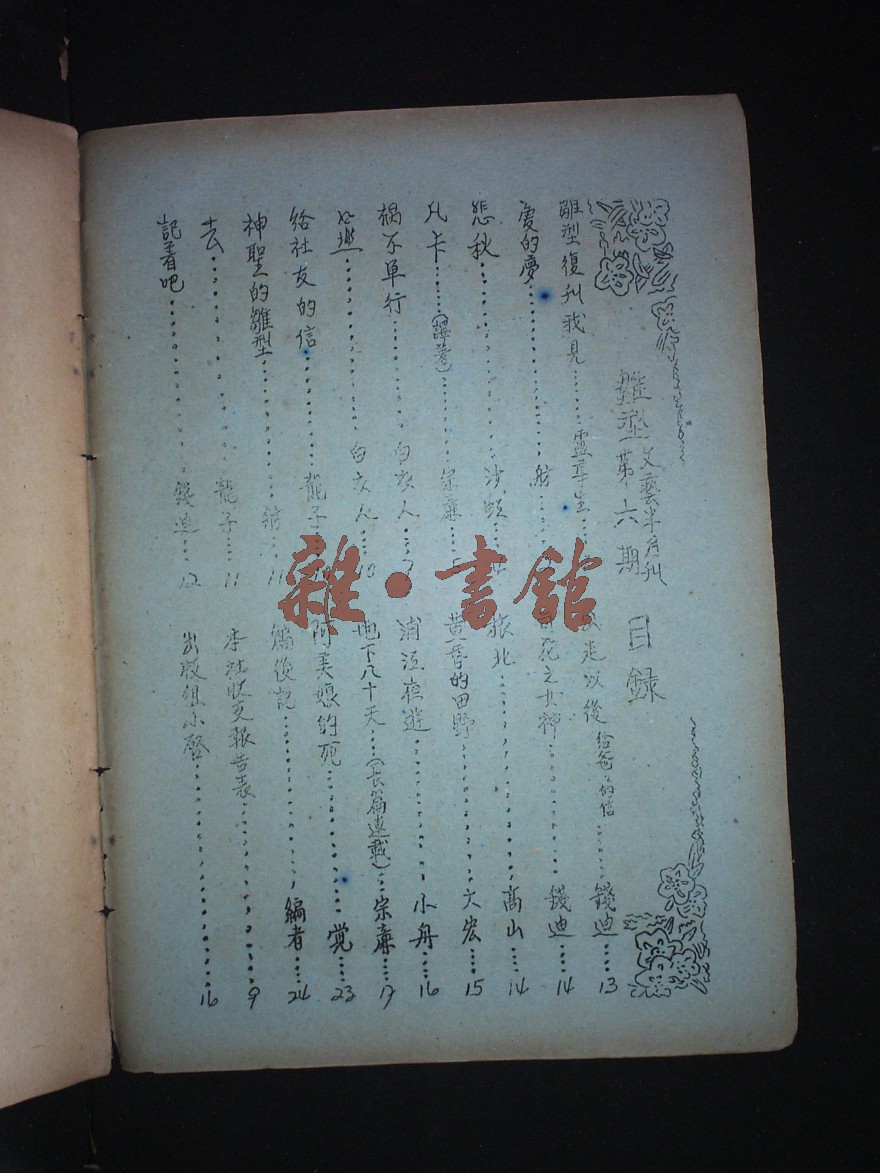 雛型文藝半月刊
第六期
目錄
雛型復刋我見
愛的夢
悲秋……沙
凡卡……(譯著)……宗廉
禍不單行……白衣人
白衣人……10
給社友的信……龍子
神聖的雛型……11
去……龍子……11
記着吧……錢迪……12
走以後 給爸爸的信……錢迪……13
花之女神……錢迪……14
旅北……高山……14
黃昏的田野……大宏……15
浦江夜遊……小舟……16
地下八十天……(長篇連載)……宗廉……17
阿美娘的死……覚……23
編後記……編者……24
本社收支報告表……9
出版組小啓……16
雜·書館